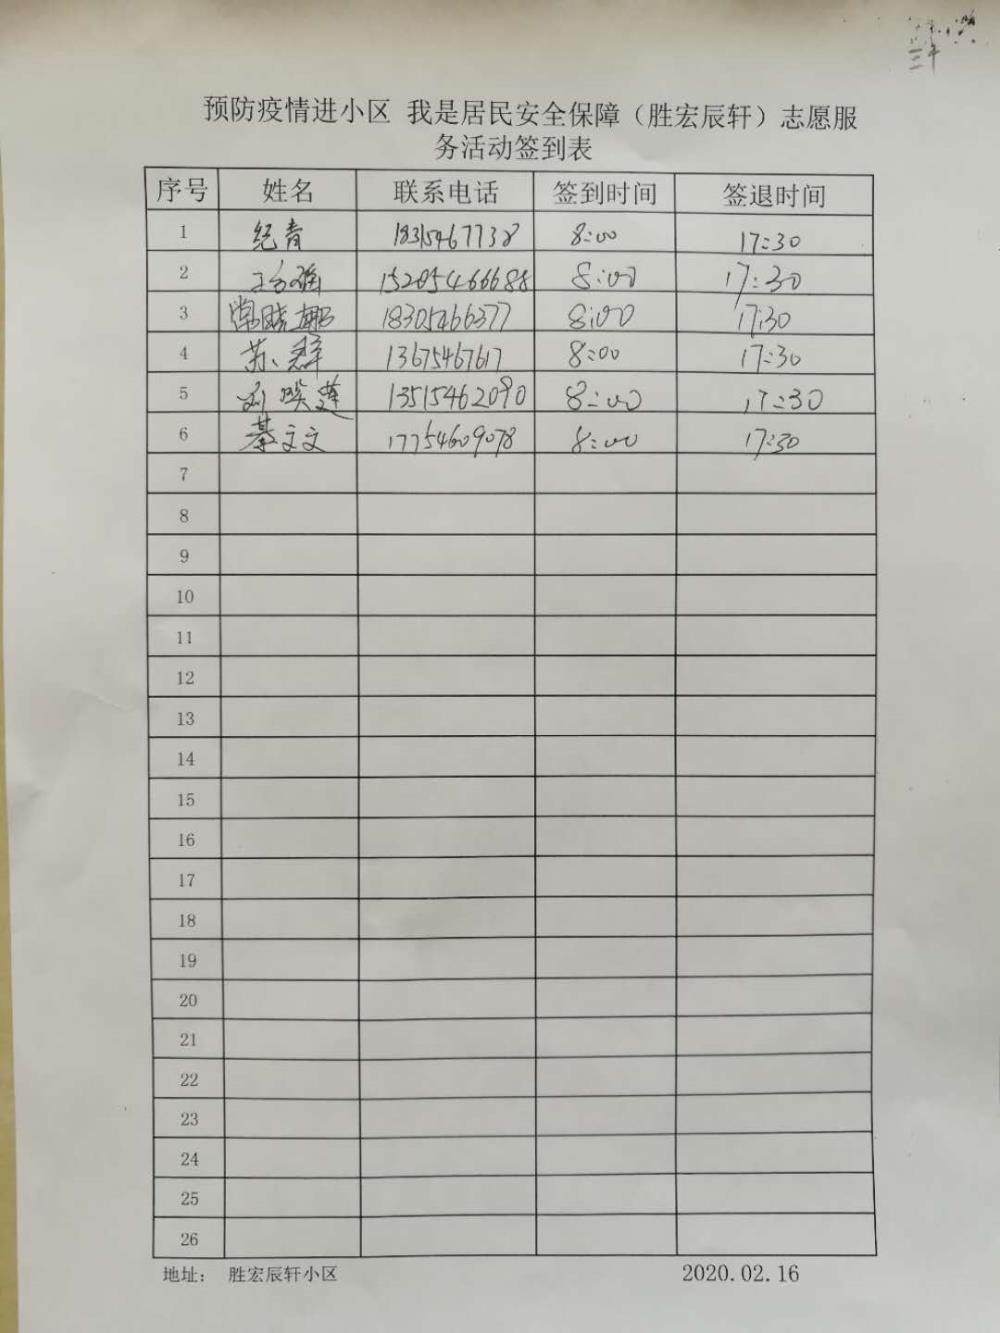 预防疫情进小区 我是居民安全保障（胜宏辰轩）志愿服
务活动签到表
序号 姓名 联系电话 签到时间 签退时间
1 纪青 18315467738 8:00 17:30
2 15205466688 8:00 17:30
3 常晓娜 18305466377 8:00 17:30
4 苏群 13675467617 8:00 17:30
5 刘 莲 13515462090 8:00 17:30
6 綦文文 17754609078 8:00 17:30
7
8
9
10
11
12
13
14
15
16
17
18
19
20
21
22
23
24
25
26
地址： 胜宏辰轩小区 2020.02.16